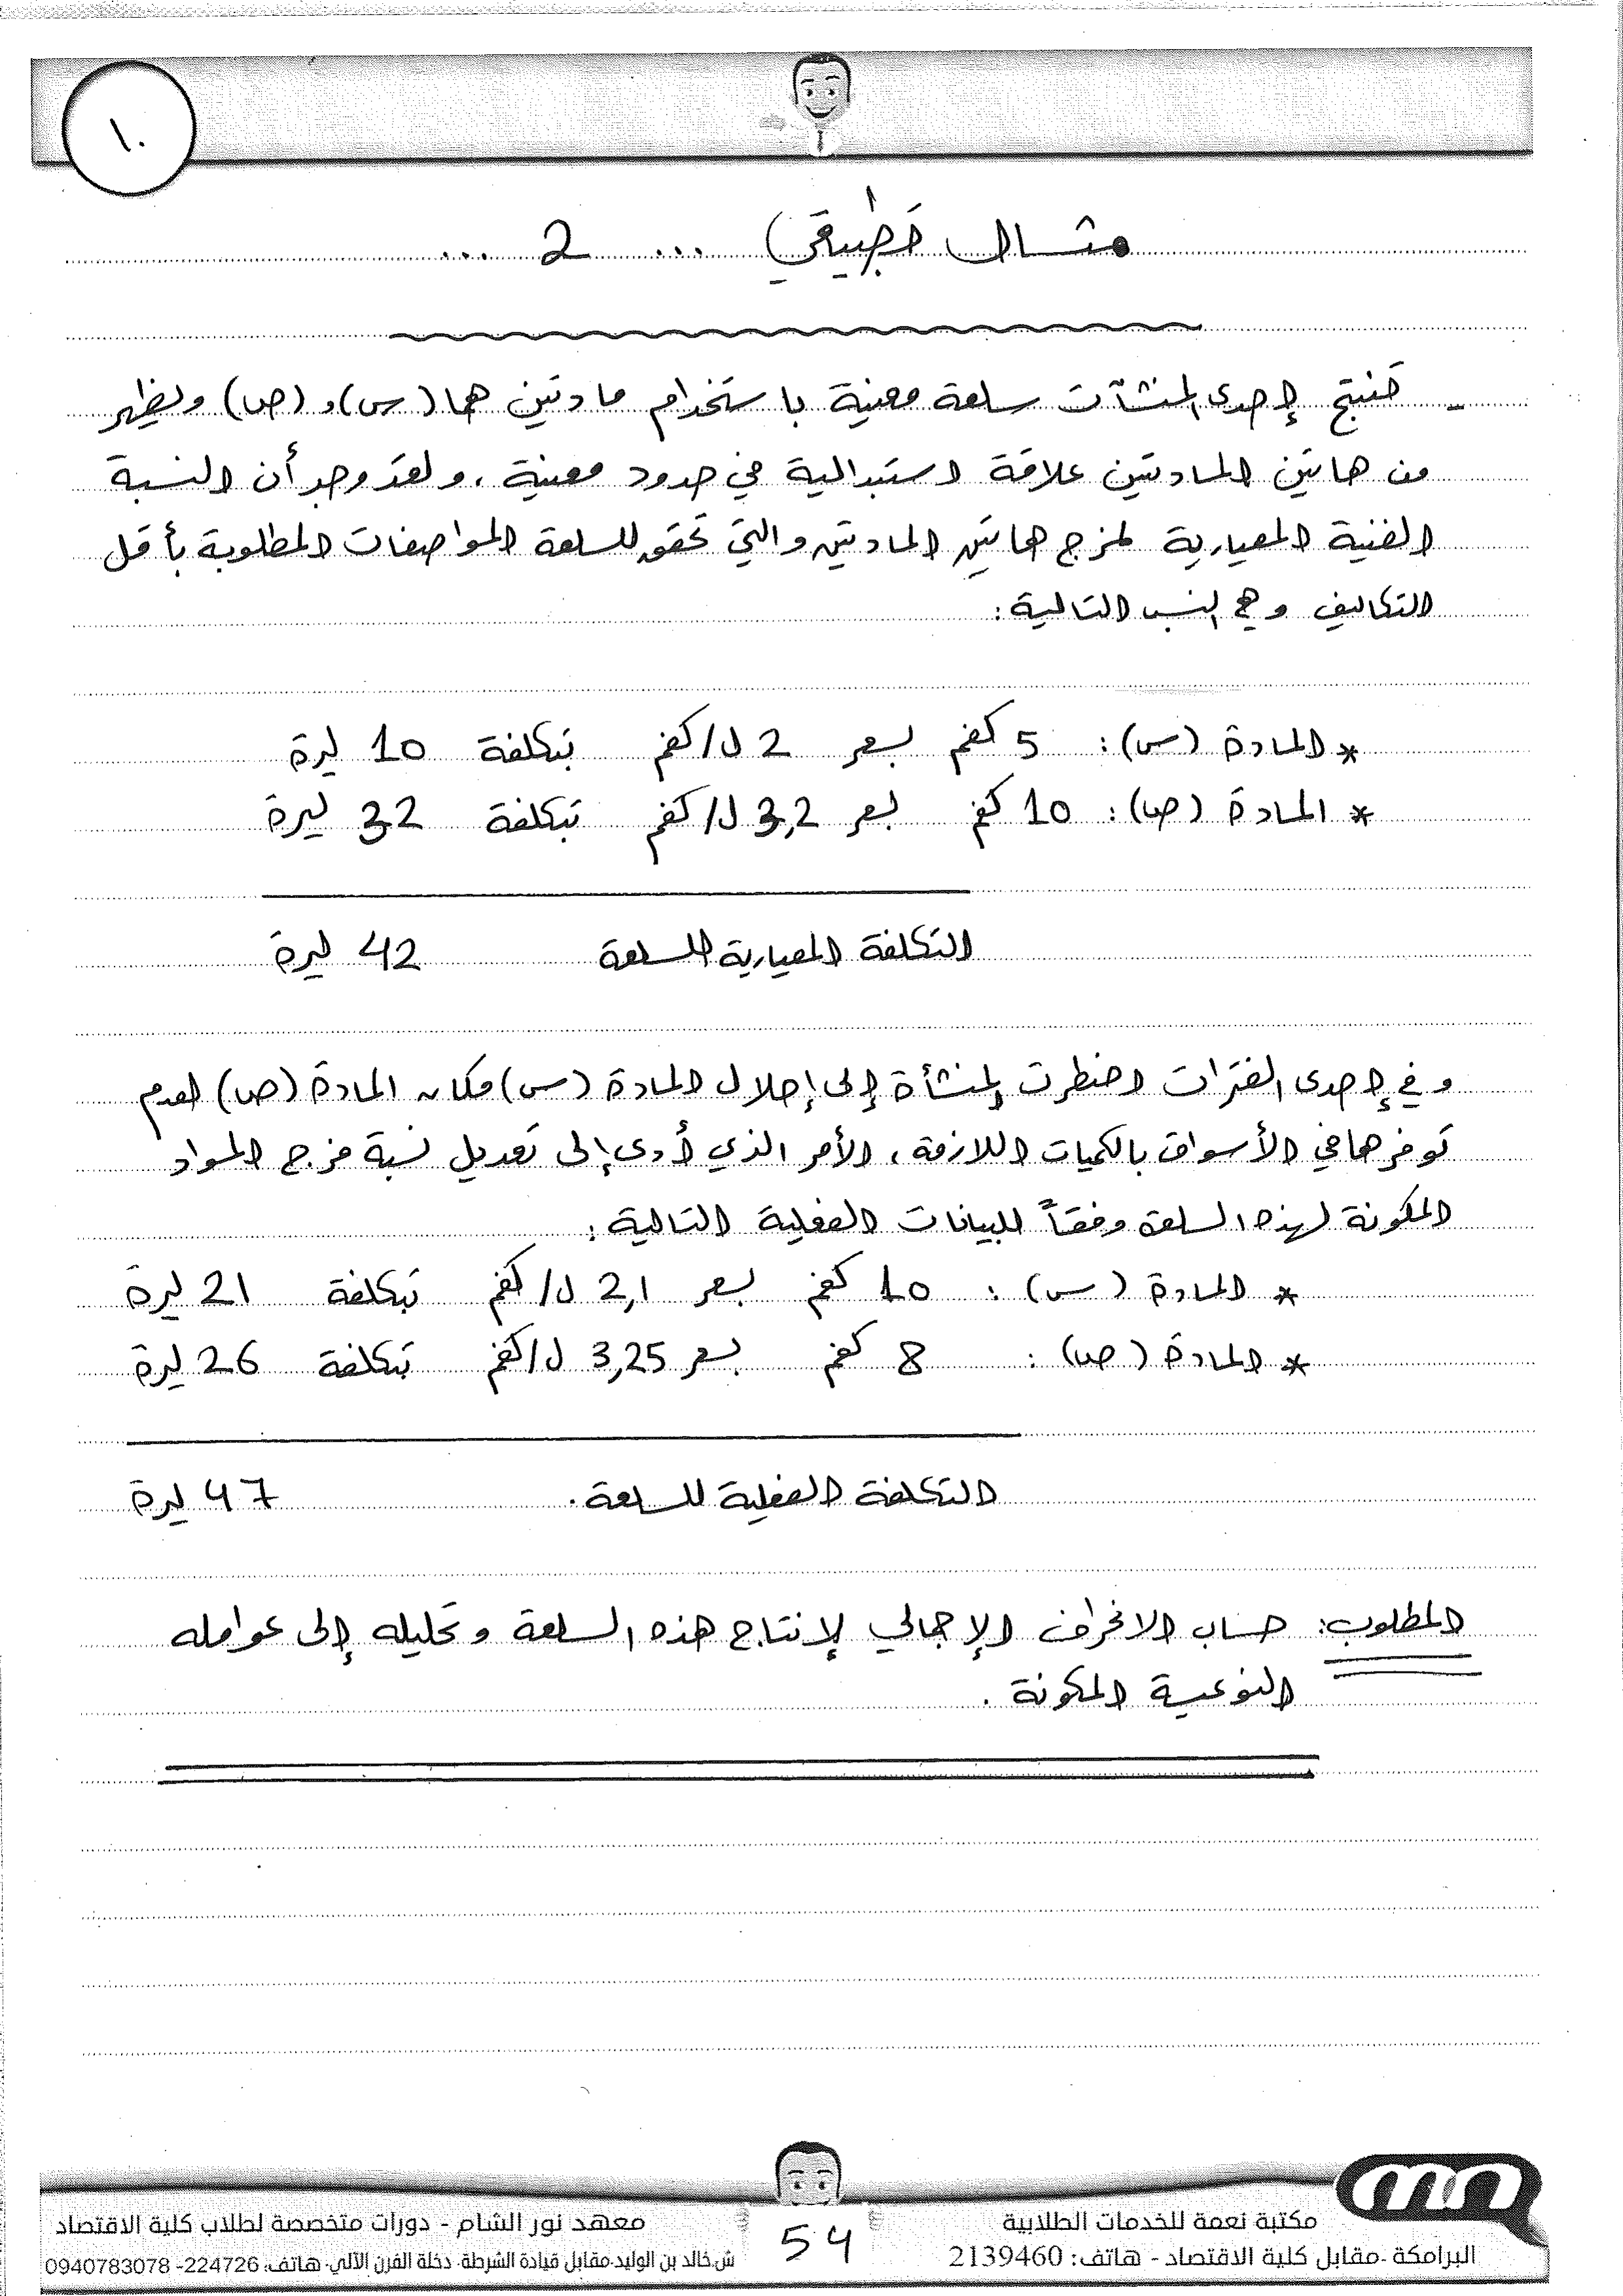 ١٠
مثال تطبيقي ... 2 ...
- تنتج إحدى المنشآت سلعة معينة باستخدام مادتين هما (س) و (ص) ويظهر
من هاتين المادتين علاقة استبدالية في حدود معينة ، ولقد وجد أن النسبة
الفنية المعيارية لمزج هاتين المادتين والتي تحقق للسلعة المواصفات المطلوبة بأقل
التكاليف وهي النسب التالية :
* المادة (س) : 5 كغم بسعر 2 ل/كغم بتكلفة 10 ليرة
* المادة (ص) : 10 كغ بسعر 3,2 ل/كغم بتكلفة 32 ليرة
التكلفة المعيارية للسلعة 42 ليرة
وفي إحدى الفترات اضطرت المنشأة إلى إحلال المادة (س) مكان المادة (ص) لعدم
توفرها في الأسواق بالكميات اللازمة ، الأمر الذي أدى إلى تعديل نسبة مزج المواد
المكونة لهذه السلعة وفقاً للبيانات الفعلية التالية :
* المادة (س) : 10 كغم بسعر 2,1 ل/كغم بتكلفة 21 ليرة
* المادة (ص) : 8 كغم بسعر 3,25 ل/كغم بتكلفة 26 ليرة
التكلفة الفعلية للسلعة . 47 ليرة
المطلوب : حساب الانحراف الإجمالي لإنتاج هذه السلعة وتحليله إلى عوامله
النوعية المكونة .
مكتبة نعمة للخدمات الطلابية
البرامكة -مقابل كلية الاقتصاد - هاتف: 2139460
54
معهد نور الشام - دورات متخصصة لطلاب كلية الاقتصاد
ش.خالد بن الوليد-مقابل قيادة الشرطة- دخلة الفرن الآلي- هاتف: 224726- 0940783078